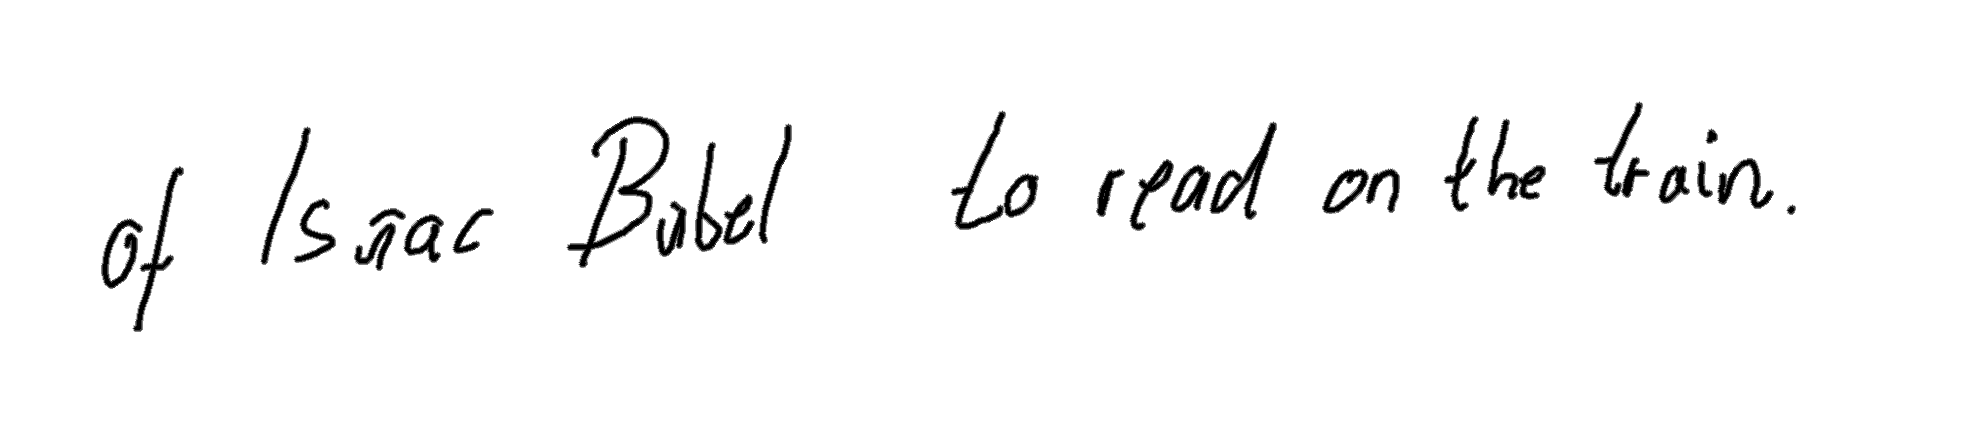 of Isaac Babel to read on the train.